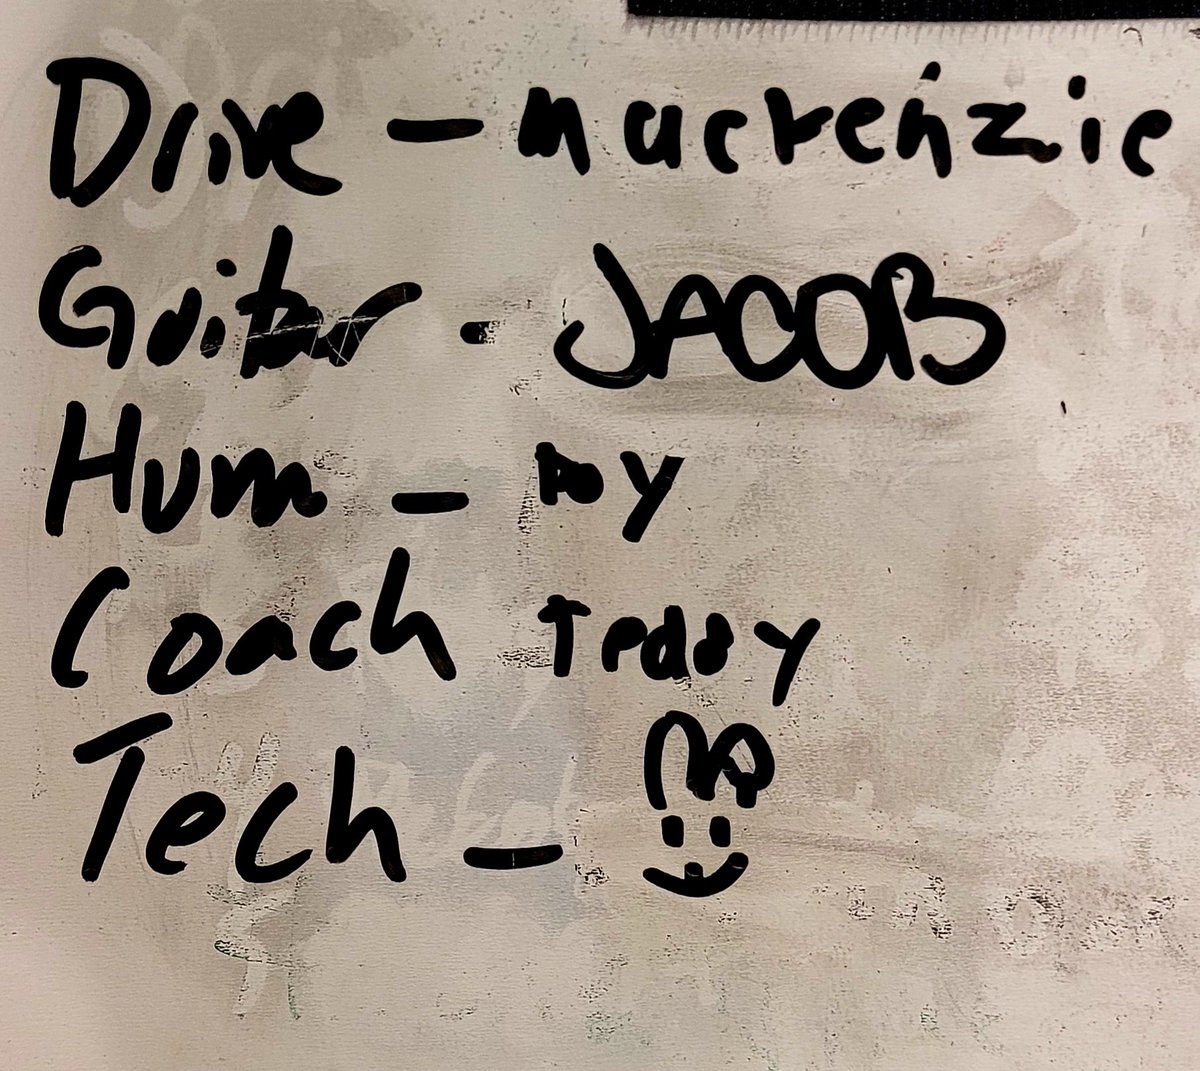 Drive - mackenzie
Guitar - JACOB
Hum -
Coach Teddy
Tech -